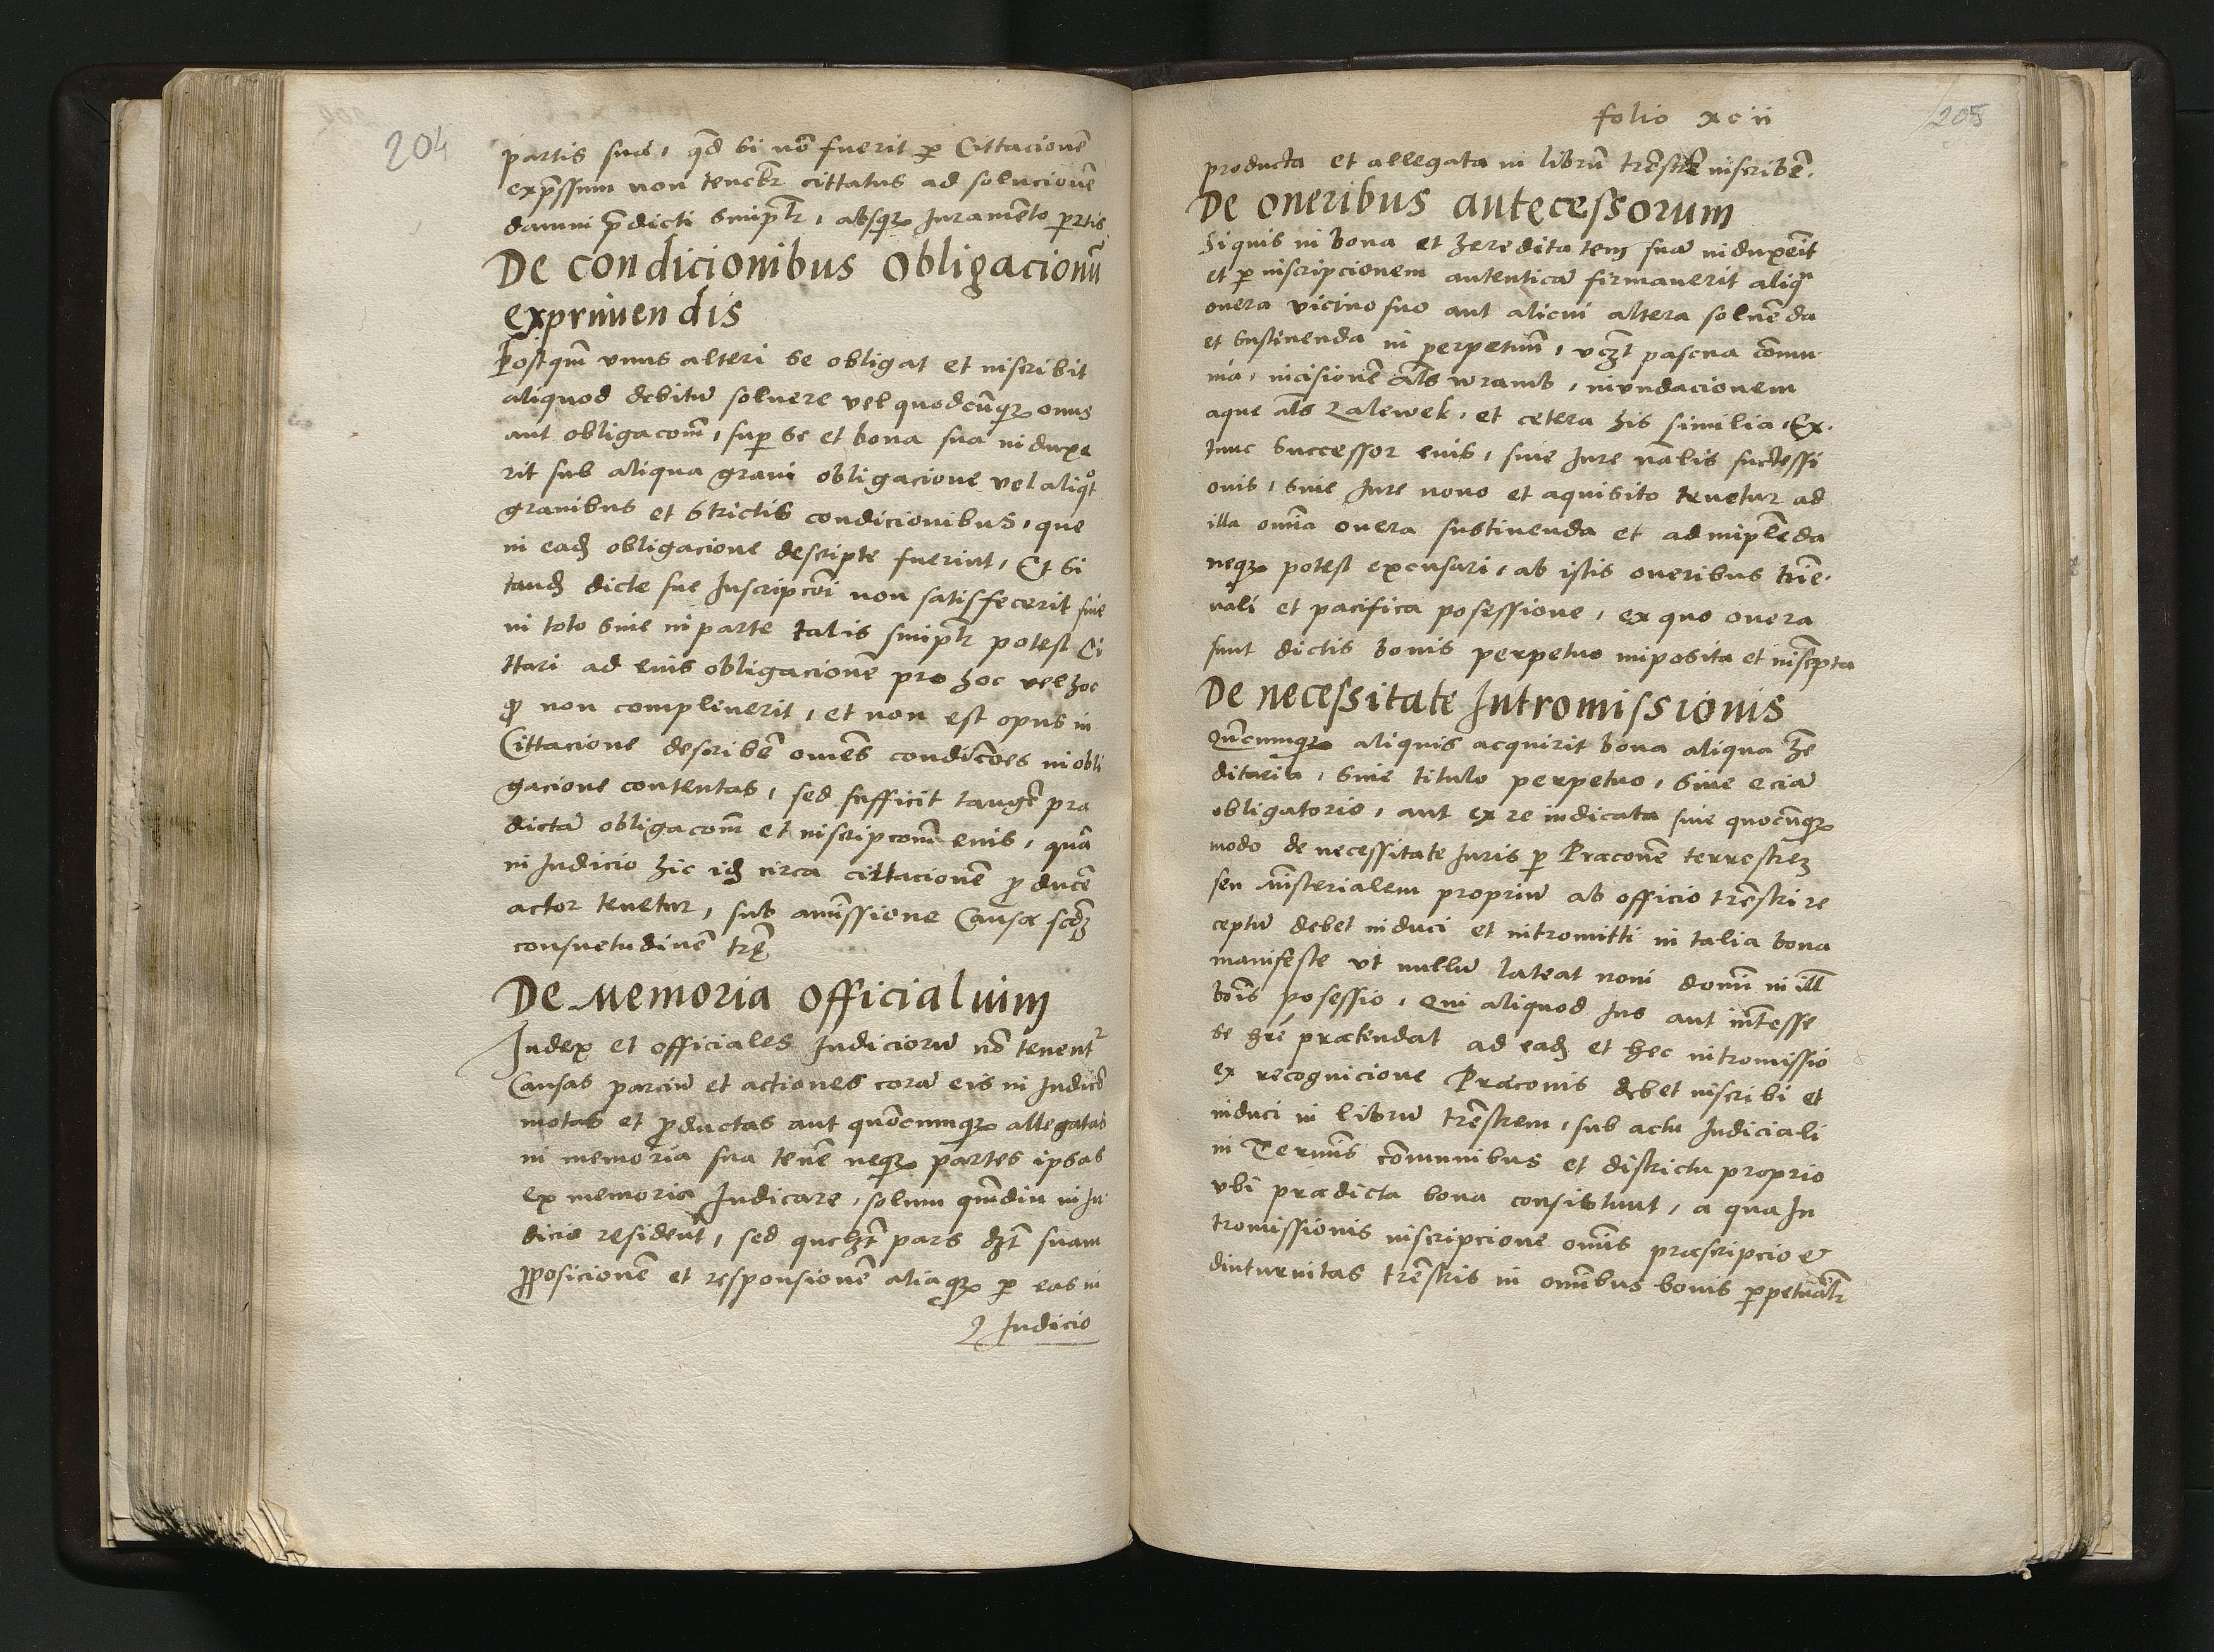 204
partis suæ, qd si nō fuerit p Cittacionē
exp̄ssum non tenebr cittatus ad solucionē
damni p̄dicti simplr, absq; Juramēto partis.
De condicionibus Obligacionū
exprimendis
Postqm̄ vnus alteri se obligat et inscribit
aliquod debitū soluere vel quodcūq; onus
aut obligacoīm, sup se et bona sua induxe
rit sub aliqua graui obligacione vel aliqt
grauibus et Strictis condicionibus, que
in eadē obligacione descripte fuerint, Et si
tandē dicte sue Inscripcōi non satisfecerit siue
in toto siue in parte talis simplr potest Ci
ttari ad eius obligacionē pro hoc vel hoc
q̄ non compleuerit, et non est opus in
Cittacione describē omēs condicōes in obli
gacione contentas, sed sufficit tangē præ
dictā obligacoīm et inscripcoīm eius, quā
in Judicio hic idē circa cittacionē ꝓducē
actor tenetur, sub amissione Causæ scdm
consuetudinē trę
De Memoria Officialium
Judex et officiales Judiciorū nō tenentr
Causas parciū et actiones corā eis in Judicō
motas et ꝓductas aut quōcumq; allegatas
in memoria sua tenē neq; partes ipsas
ex memoria Judicare, solum qm̄diu in Ju
dicio residēt, sed quelȝt pars dȝt suam
ꝓposicionē et responsionē aliaq; p eas in
Judicio
folio xcii
205
producta et allegata in librū trēstrē inscribē.
De oneribus antecessorum
Siquis in bona et hereditatem suā induxeīt
et p inscripcionem autenticā firmauerit aliq
onera vicino suo aut alicui altera soluēda
et sustinenda in perpetuū, vcȝt pascua cōmu
nia, incisionē als wramb, inundacionem
aque als zalewek, et cetera his similia, Ex
tunc Successor eius, siue Jure nālis sucessi
onis, siue Jure nouo et aquisito tenetur ad
illa omīa onera sustinenda et adimplēda
neq; potest excusari, ab istis oneribus triē
nali et pacifica posessione, ex quo onera
sunt dictis bonis perpetuo imposita et inscrpta
De necessitate Intromissionis
Qūcumq; aliquis acquirit bona aliqua he
ditaria, siue titulo perpetuo, siue eciā
obligatorio, aut ex re iudicata siue quocūq;
modo de necessitate Juris p Præconē terrestrē
seu Mīsterialem propriū ab officio trēstri re
ceptū debet induci et intromitti in talia bona
manifeste vt nullū lateat noui domī in ill
boīs posessio, Qui aliquod Jus aut intēsse
se hrē prætendat ad eadē et hec intromissio
ex recognicione Præconis debet inscribi et
induci in librū trēstrem, sub actu Judiciali
in Termīs cōmunibus et districtu proprio
vbi prædicta bona consistunt, a qua In
tromissionis inscripcione omīs præscripcio et
diuturnitas trēstris in omībus bonis ppetuatr